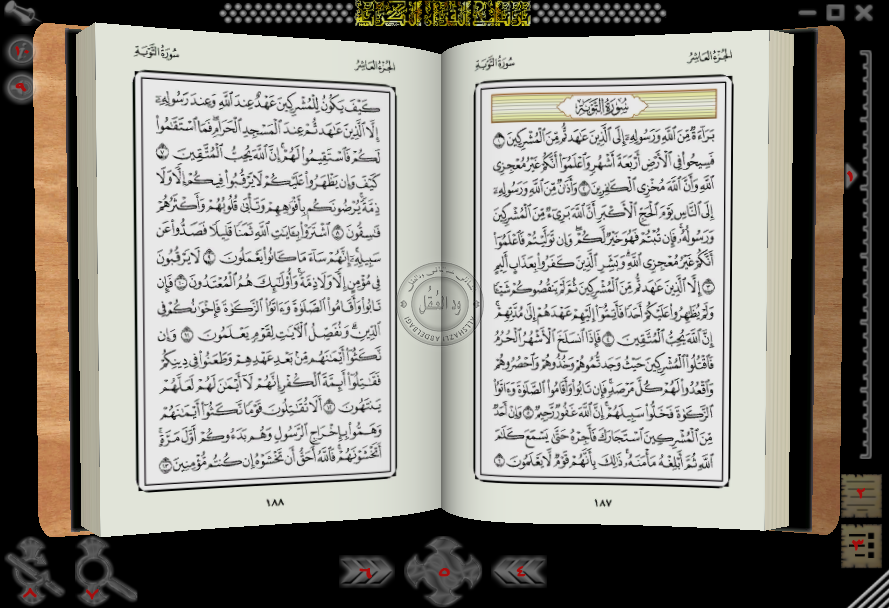 الجزء العاشر
سورة التوبة
سُورَةُ التَّوْبَةِ
بَرَآءَةٌ مِّنَ ٱللَّهِ وَرَسُولِهِۦٓ إِلَى ٱلَّذِينَ عَٰهَدتُّم مِّنَ ٱلْمُشْرِكِينَ ١
فَسِيحُوا۟ فِى ٱلْأَرْضِ أَرْبَعَةَ أَشْهُرٍ وَٱعْلَمُوٓا۟ أَنَّكُمْ غَيْرُ مُعْجِزِى
ٱللَّهِ وَأَنَّ ٱللَّهَ مُخْزِى ٱلْكَٰفِرِينَ ٢ وَأَذَٰنٌ مِّنَ ٱللَّهِ وَرَسُولِهِۦٓ
إِلَى ٱلنَّاسِ يَوْمَ ٱلْحَجِّ ٱلْأَكْبَرِ أَنَّ ٱللَّهَ بَرِىٓءٌ مِّنَ ٱلْمُشْرِكِينَ
وَرَسُولُهُۥ فَإِن تُبْتُمْ فَهُوَ خَيْرٌ لَّكُمْ وَإِن تَوَلَّيْتُمْ فَٱعْلَمُوٓا۟
أَنَّكُمْ غَيْرُ مُعْجِزِى ٱللَّهِ وَبَشِّرِ ٱلَّذِينَ كَفَرُوا۟ بِعَذَابٍ أَلِيمٍ
٣ إِلَّا ٱلَّذِينَ عَٰهَدتُّم مِّنَ ٱلْمُشْرِكِينَ ثُمَّ لَمْ يَنقُصُوكُمْ شَيْـًٔا
وَلَمْ يُظَٰهِرُوا۟ عَلَيْكُمْ أَحَدًا فَأَتِمُّوٓا۟ إِلَيْهِمْ عَهْدَهُمْ إِلَىٰ مُدَّتِهِمْ
إِنَّ ٱللَّهَ يُحِبُّ ٱلْمُتَّقِينَ ٤ فَإِذَا ٱنسَلَخَ ٱلْأَشْهُرُ ٱلْحُرُمُ
فَٱقْتُلُوا۟ ٱلْمُشْرِكِينَ حَيْثُ وَجَدتُّمُوهُمْ وَخُذُوهُمْ وَٱحْصُرُوهُمْ
وَٱقْعُدُوا۟ لَهُمْ كُلَّ مَرْصَدٍ فَإِن تَابُوا۟ وَأَقَامُوا۟ ٱلصَّلَوٰةَ وَءَاتَوُا۟
ٱلزَّكَوٰةَ فَخَلُّوا۟ سَبِيلَهُمْ إِنَّ ٱللَّهَ غَفُورٌ رَّحِيمٌ ٥ وَإِنْ أَحَدٌ
مِّنَ ٱلْمُشْرِكِينَ ٱسْتَجَارَكَ فَأَجِرْهُ حَتَّىٰ يَسْمَعَ كَلَٰمَ
ٱللَّهِ ثُمَّ أَبْلِغْهُ مَأْمَنَهُۥ ذَٰلِكَ بِأَنَّهُمْ قَوْمٌ لَّا يَعْلَمُونَ ٦
١٨٧
الجزء العاشر
سورة التوبة
كَيْفَ يَكُونُ لِلْمُشْرِكِينَ عَهْدٌ عِندَ ٱللَّهِ وَعِندَ رَسُولِهِۦٓ
إِلَّا ٱلَّذِينَ عَٰهَدتُّمْ عِندَ ٱلْمَسْجِدِ ٱلْحَرَامِ فَمَا ٱسْتَقَٰمُوا۟
لَكُمْ فَٱسْتَقِيمُوا۟ لَهُمْ إِنَّ ٱللَّهَ يُحِبُّ ٱلْمُتَّقِينَ ٧
كَيْفَ وَإِن يَظْهَرُوا۟ عَلَيْكُمْ لَا يَرْقُبُوا۟ فِيكُمْ إِلًّا وَلَا
ذِمَّةً يُرْضُونَكُم بِأَفْوَٰهِهِمْ وَتَأْبَىٰ قُلُوبُهُمْ وَأَكْثَرُهُمْ
فَٰسِقُونَ ٨ ٱشْتَرَوْا۟ بِـَٔايَٰتِ ٱللَّهِ ثَمَنًا قَلِيلًا فَصَدُّوا۟ عَن
سَبِيلِهِۦٓ إِنَّهُمْ سَآءَ مَا كَانُوا۟ يَعْمَلُونَ ٩ لَا يَرْقُبُونَ
فِى مُؤْمِنٍ إِلًّا وَلَا ذِمَّةً وَأُو۟لَٰٓئِكَ هُمُ ٱلْمُعْتَدُونَ ١٠ فَإِن
تَابُوا۟ وَأَقَامُوا۟ ٱلصَّلَوٰةَ وَءَاتَوُا۟ ٱلزَّكَوٰةَ فَإِخْوَٰنُكُمْ فِى
ٱلدِّينِ وَنُفَصِّلُ ٱلْءَايَٰتِ لِقَوْمٍ يَعْلَمُونَ ١١ وَإِن
نَّكَثُوٓا۟ أَيْمَٰنَهُم مِّنۢ بَعْدِ عَهْدِهِمْ وَطَعَنُوا۟ فِى دِينِكُمْ
فَقَٰتِلُوٓا۟ أَئِمَّةَ ٱلْكُفْرِ إِنَّهُمْ لَآ أَيْمَٰنَ لَهُمْ لَعَلَّهُمْ
يَنتَهُونَ ١٢ أَلَا تُقَٰتِلُونَ قَوْمًا نَّكَثُوٓا۟ أَيْمَٰنَهُمْ
وَهَمُّوا۟ بِإِخْرَاجِ ٱلرَّسُولِ وَهُم بَدَءُوكُمْ أَوَّلَ مَرَّةٍ
أَتَخْشَوْنَهُمْ فَٱللَّهُ أَحَقُّ أَن تَخْشَوْهُ إِن كُنتُم مُّؤْمِنِينَ ١٣
١٨٨
ود العقل
ALSHAZLI ABDELBAGI
١
٢
٣
٤
٥
٦
٧
٨
٩
١٠